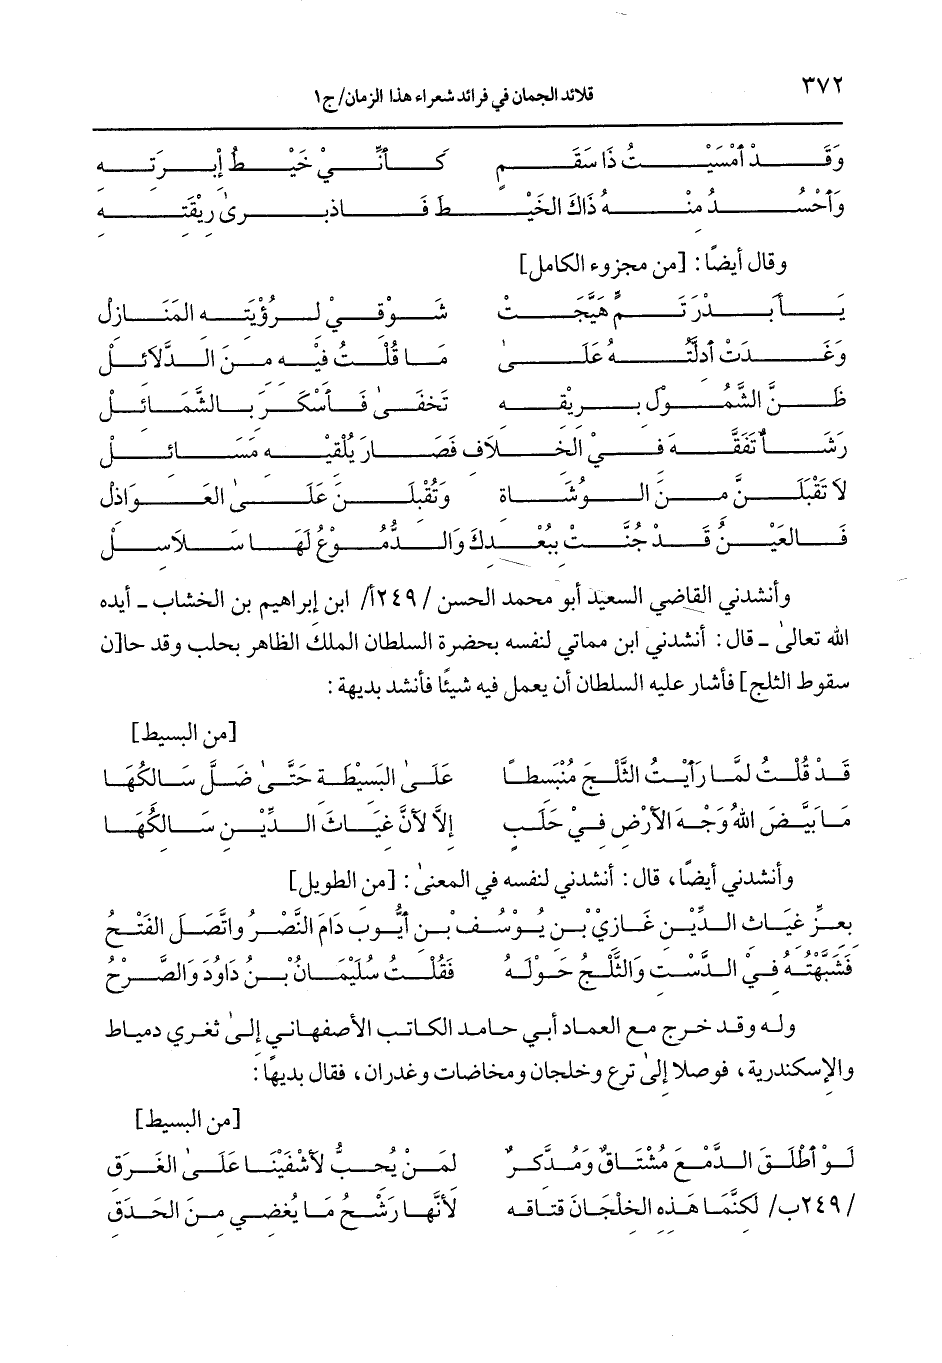 ٣٧٢
قلائد الجمان في فرائد شعراء هذا الزمان/ج١
وَقَدْ أَمْسَيْتُ ذَا سَقَمٍ كَأَنِّيْ خَيْطُ إِبْرَتِهِ
وَأَحْسُدُ مِنْهُ ذَاكَ الخَيْطَ فَاذبرىٰ رِيْقَتِهِ
وقال أيضًا: [من مجزوء الكامل]
يَا بَدْرَ تَمٍّ هَيَّجَتْ شَوْقِيْ لِرُؤْيَتِهِ المَنَازِلْ
وَغَدَتْ أَدِلَّتُهُ عَلَىٰ مَا قُلْتُ فِيْهِ مِنَ الدَّلائِلْ
ظَنَّ الشَّمُوْلَ بِرِيْقِهِ تَخفَىٰ فَأَسْكَرَ بِالشَّمَائِلْ
رَشَأٌ تَفَقَّهَ فِيْ الخِلَافِ فَصَارَ يُلْقِيْهِ مَسَائِلْ
لاَ تَقْبَلَنَّ مِنَ الوُشَاةِ وَتُقْبِلَنَّ عَلَىٰ العَوَاذِلْ
فَالعَيْنُ قَدْ جُنَّتْ بِبُعْدِكَ وَالدُّمُوْعُ لَهَا سَلاَسِلْ
وأنشدني القاضي السعيد أبو محمد الحسن /٢٤٩أ/ ابن إبراهيم بن الخشاب ـ أيده
الله تعالىٰ ـ قال: أنشدني ابن مماتي لنفسه بحضرة السلطان الملك الظاهر بحلب وقد حا[ن
سقوط الثلج] فأشار عليه السلطان أن يعمل فيه شيئًا فأنشد بديهة:
[من البسيط]
قَدْ قُلْتُ لمَّا رَأَيْتُ الثَّلْجَ مُنْبَسِطًا عَلَىٰ البَسِيْطَةِ حَتَّىٰ ضَلَّ سَالِكُهَا
مَا بَيَّضَ اللهُ وَجْهَ الأَرْضِ فِيْ حَلَبٍ إِلاَّ لأَنَّ غِيَاثَ الدِّيْنِ سَالِكُهَا
وأنشدني أيضًا، قال: أنشدني لنفسه في المعنىٰ: [من الطويل]
بِعِزِّ غِيَاثِ الدِّيْنِ غَازِيْ بْنِ يُوْسُفَ بْنِ أَيُّوبَ دَامَ النَّصْرُ وَاتَّصَلَ الفَتْحُ
فَشَبَّهْتُهُ فِيْ الدَّسْتِ وَالثَّلْجُ حَوْلَهُ فَقُلْتُ سُلَيْمَانُ بْنُ دَاوُدَ وَالصَّرْحُ
وله وقد خرج مع العماد أبي حامد الكاتب الأصفهاني إلىٰ ثغري دمياط
والإسكندرية، فوصلا إلىٰ ترع وخلجان ومخاضات وغدران، فقال بديهًا:
[من البسيط]
لَوْ أَطْلَقَ الدَّمْعَ مُشْتَاقٌ وَمُدَّكِرٌ لِمَنْ يُحِبُّ لأَشْفَيْنَا عَلَىٰ الغَرَقِ
/٢٤٩ب/ لَكِنَّمَا هَذِهِ الخلْجَانَ قتاقه لأَنَّهَا رَشْحُ مَا يُغْضِي مِنَ الحَدَقِ